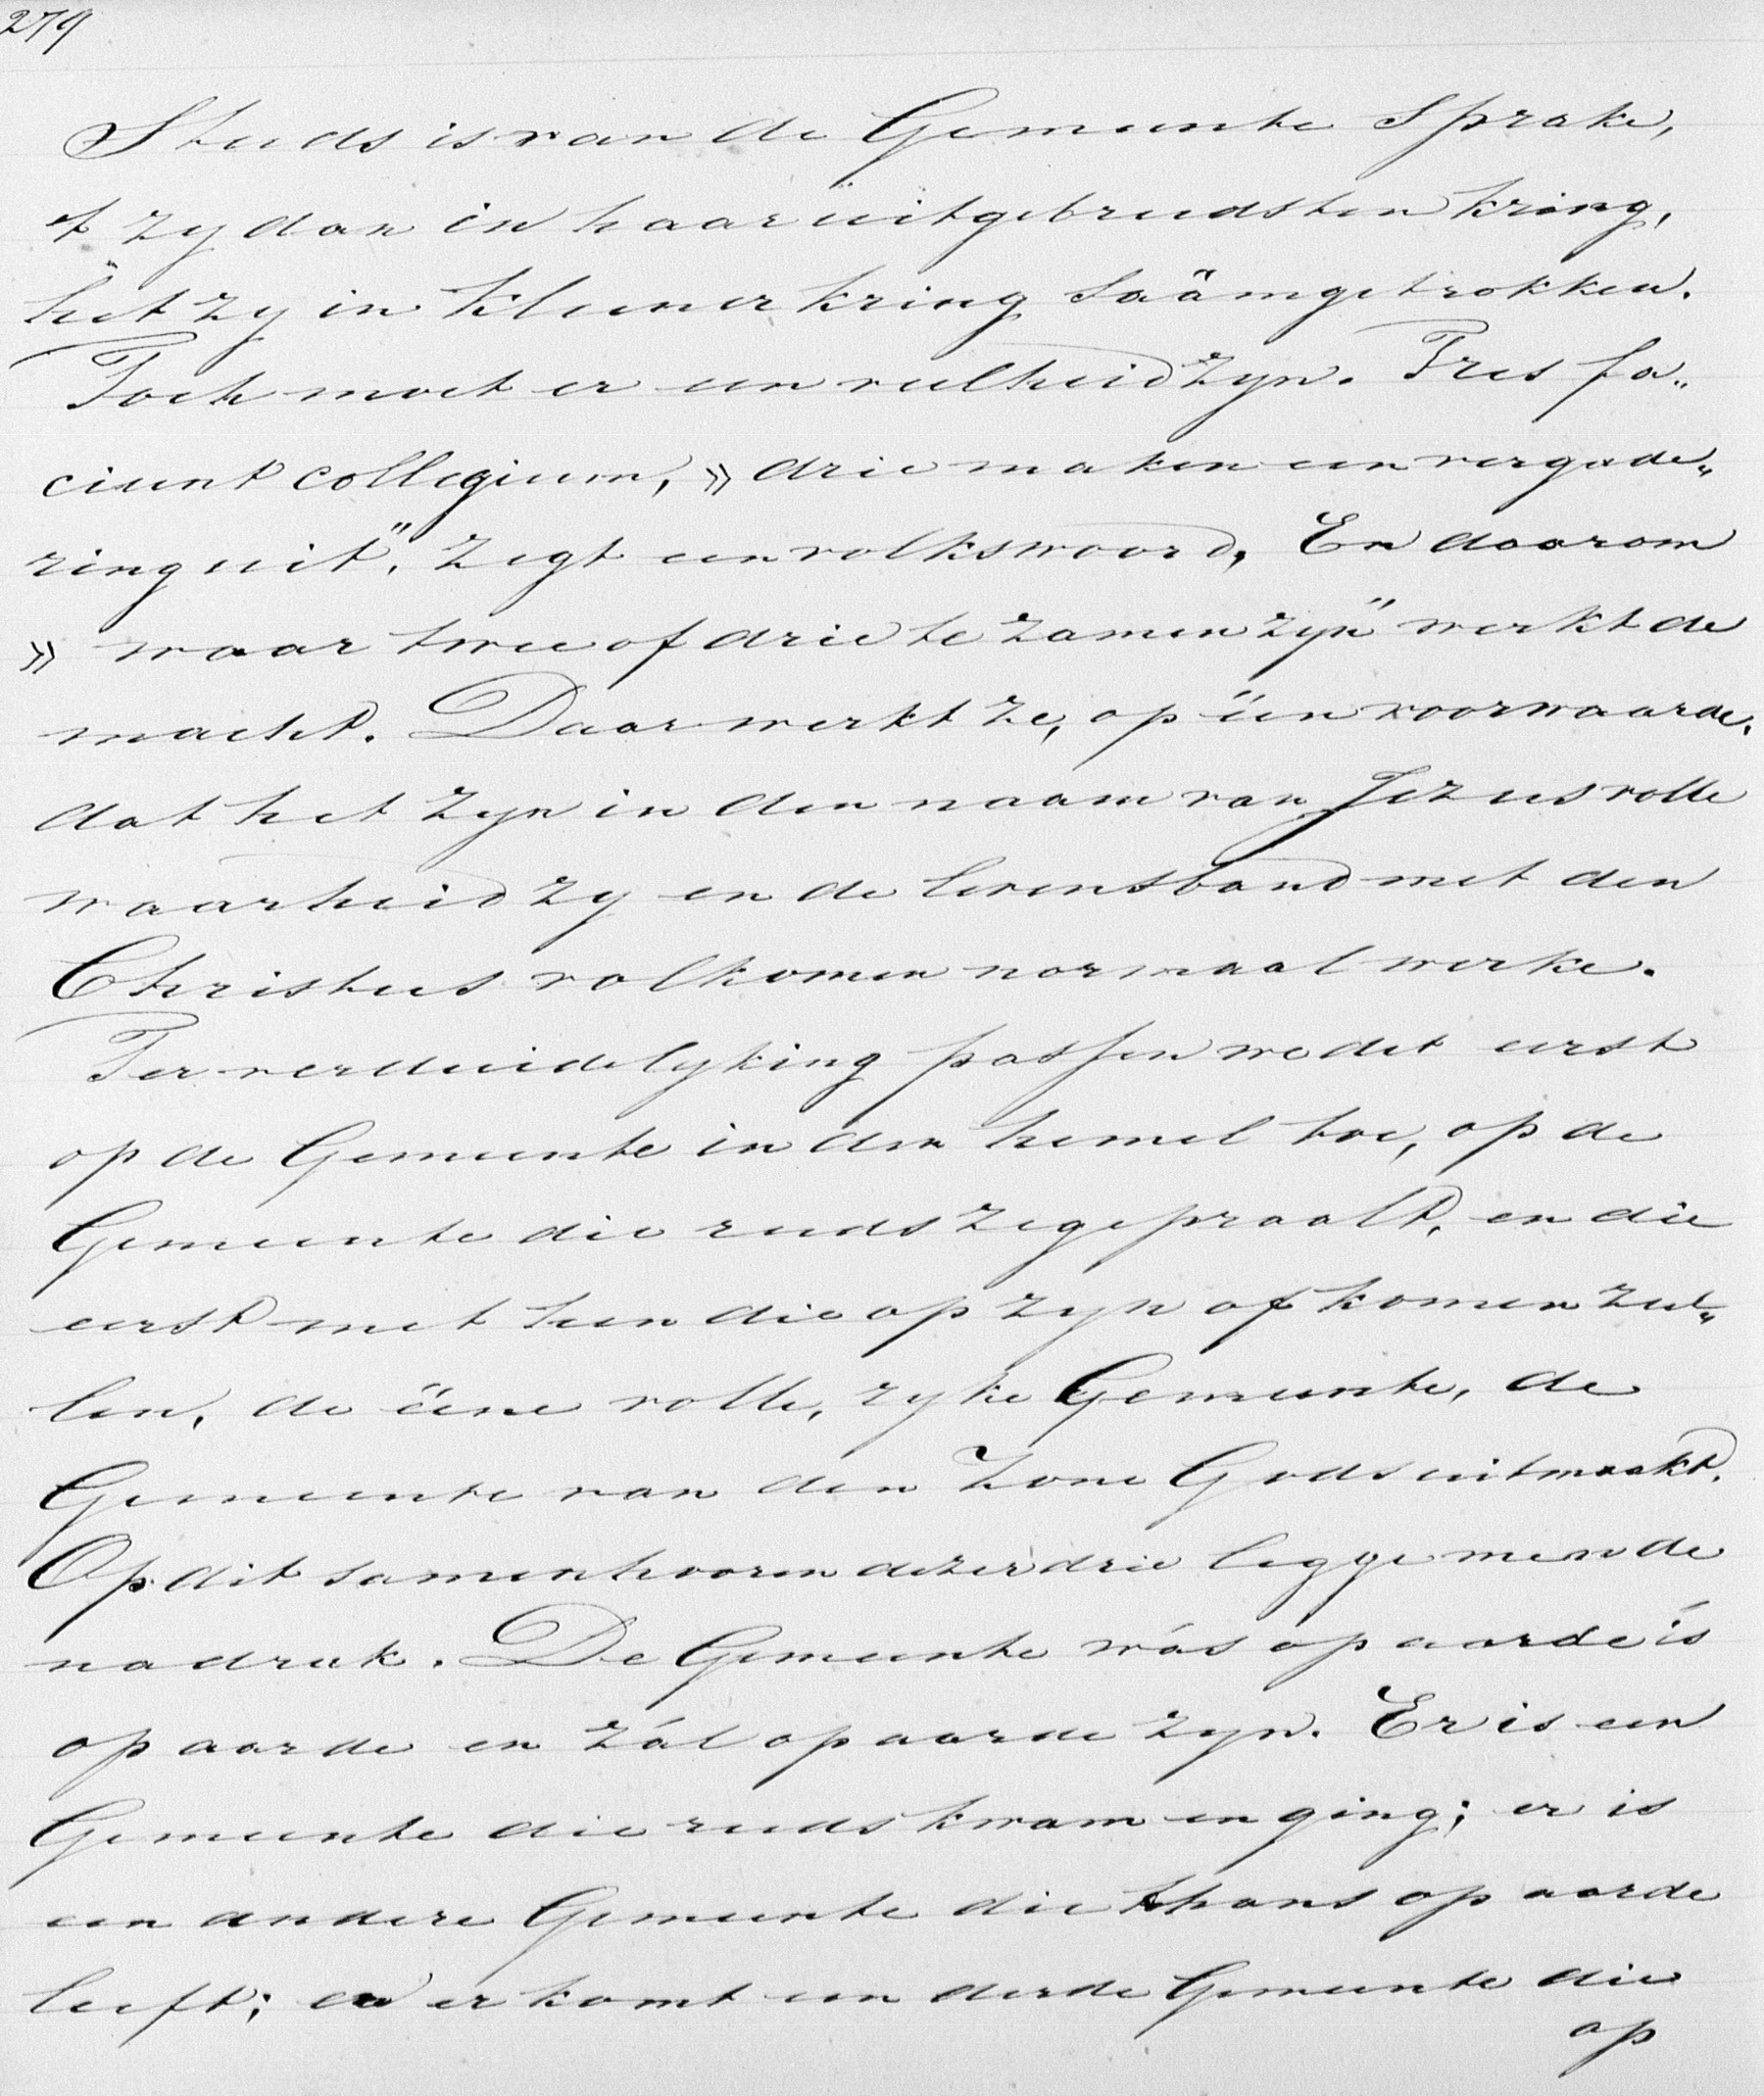 279
Steeds is van de Gemeente sprake,
't zy dan in haar uitgebreedsten kring,
het zy in kleiner kring saâmgetrokken.
Toch moet er een veelheid zyn. Tres fa„
ciunt collegium, » drie maken een vergade„
ring uit", zegt een volkswoord, En daarom
» waar twee of drie te zamen zyn" werkt de
macht. Daar werkt ze, op één voorwaarde,
dat het zyn in den naam van Jezus volle
waarheid zy en de levensband met den
Christus volkomen normaal werke.
Ter verduidelyking passen we dit eerst
op de Gemeente in den hemel toe, op de
Gemeente die reeds zegepraalt, en die
eerst met hen die op zyn of komen zul„
len, de ééne volle, ryke Gemeente, de
Gemeente van den Zone Gods uitmaakt.
Op dit samenhooren dezer drie legge men de
nadruk. De Gemeente wás op aarde ís
op aarde en zál op aarde zyn. Er is een
Gemeente die reeds kwam en ging; er is
een andere Gemeente die thans op aarde
leeft; en er komt een derde Gemeente die
op